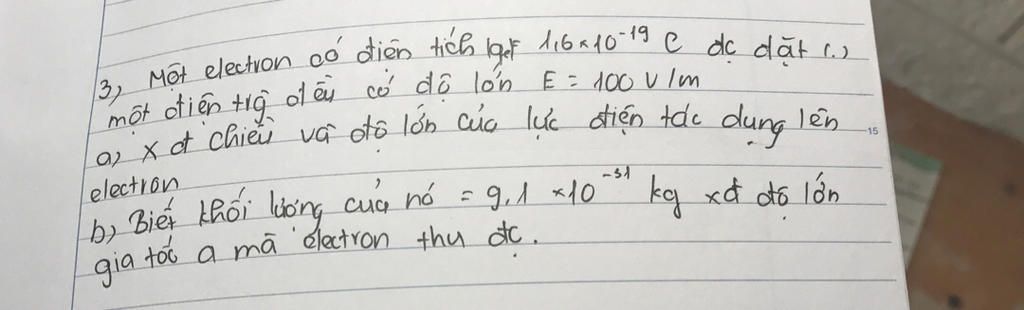 3, Một electron có điện tích |qe| = 1,6 × 10⁻¹⁹ C đc đặt (.)
một điện trg đều có độ lớn E = 100 V/m
a, xđ chiều và độ lớn của lực điện tác dụng lên
15
electron
b, Biết khối lượng của nó = 9,1 × 10⁻³¹ kg xđ độ lớn
gia tốc a mà electron thu đc.